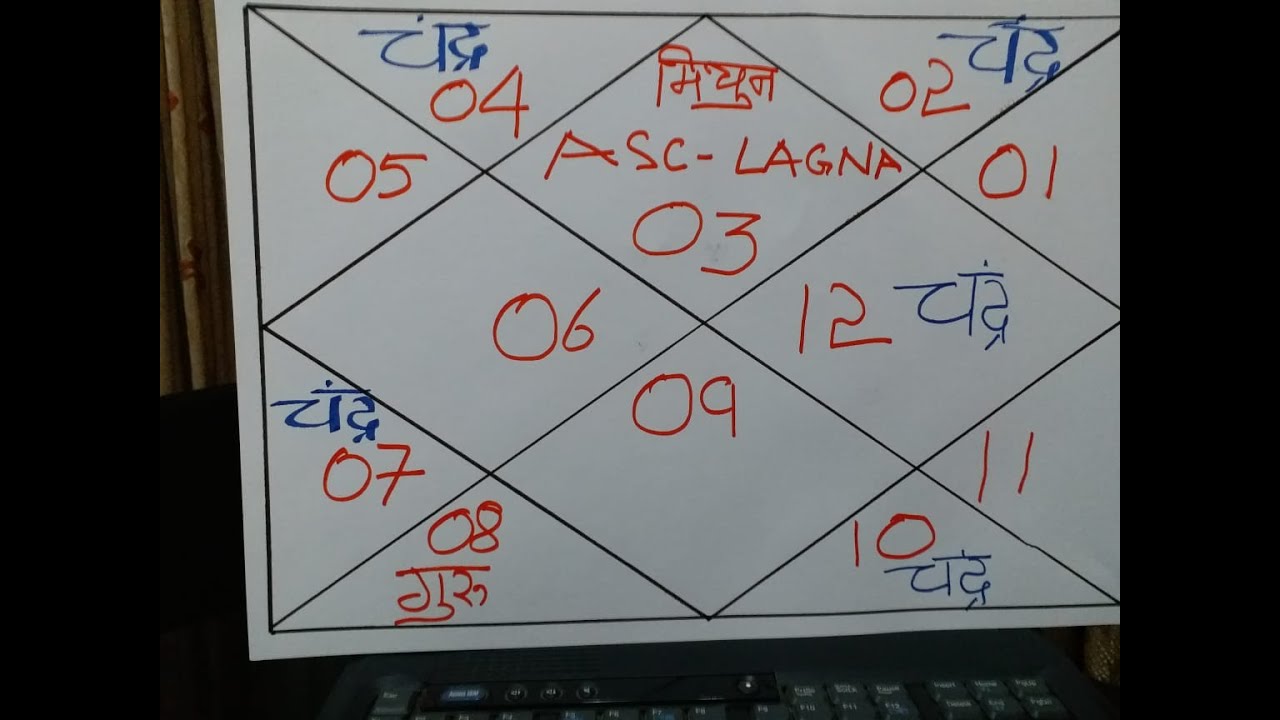 चंद्र
04
मिथुन
ASC-LAGNA
03
02
चंद्र
01
05
06
12 चंद्र
चंद्र
07
09
11
08
गुरु
10
चंद्र